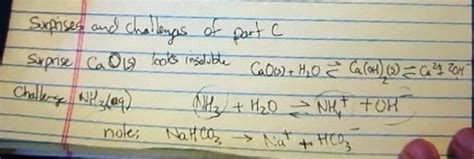 Surprises and challenges of part C
Surprise CaO(s) looks insoluble CaO(s) + H₂O ⇌ Ca(OH)₂(s) ⇌ Ca²⁺ 2OH⁻
Challenge NH₃(aq) NH₃ + H₂O ⇌ NH₄⁺ + OH⁻
note: NaHCO₃ → Na⁺ + HCO₃⁻